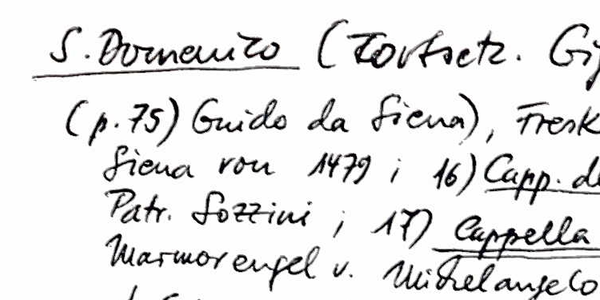 S. Domenico (Fortsetz. Gi
(p. 75) Guido da Siena), Fresk
Siena von 1479 ; 16) Capp. de
Patr. Sozzini ; 17) Cappella
Marmorengel v. Michelangelo